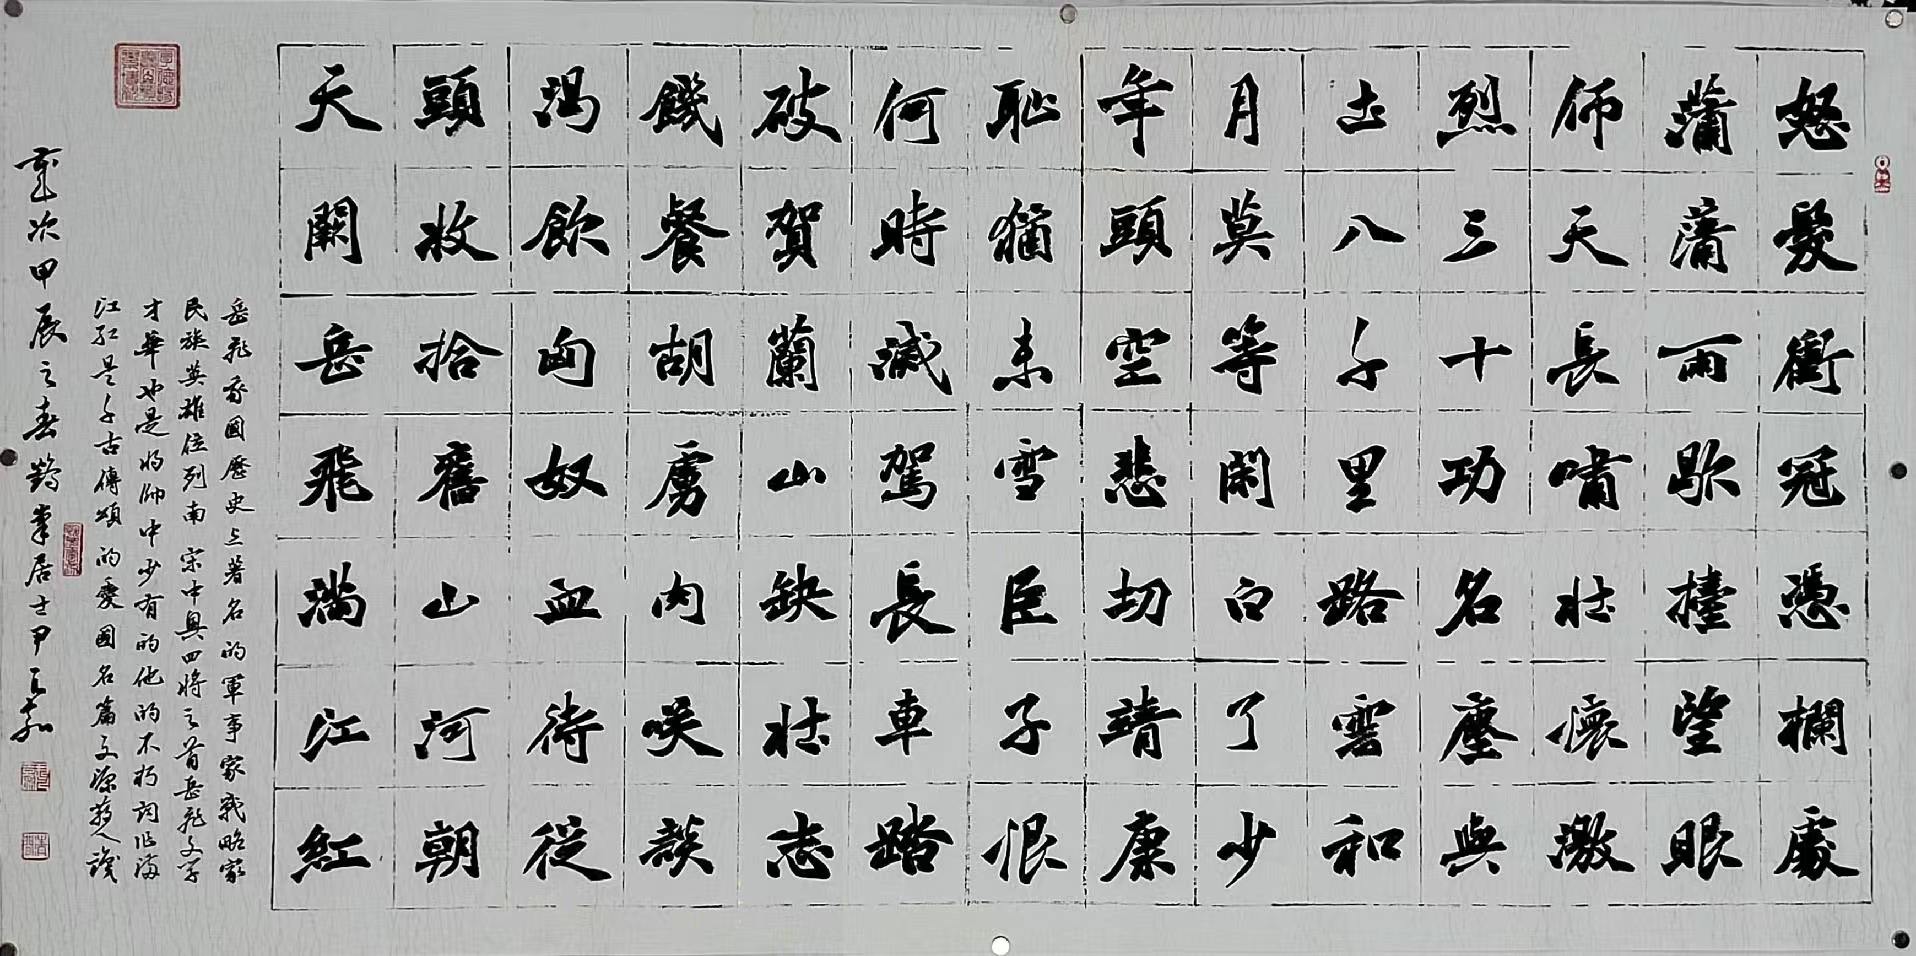 怒髮衝冠憑欄處
瀟瀟雨歇擡望眼
仰天長嘯壯懷激
烈三十功名塵與
土八千里路雲和
月莫等閑白了少
年頭空悲切靖康
恥猶未雪臣子恨
何時滅駕長車踏
破賀蘭山缺壯志
饑餐胡虜肉咲談
渴飲匈奴血待從
頭收拾舊山河朝
天闕岳飛滿江紅
岳飛我國歷史上著名的軍事家戰略家
民族英雄位列南宋中興四將之首岳飛文學
才華也是將帥中少有的他的不朽詞作滿
江紅是千古傳頌的愛國名篇文源
甲辰之春鶴峯居士尹